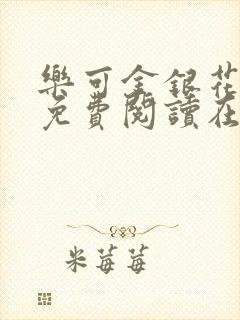 樂可金銀花
免費閱讀在
米莓莓